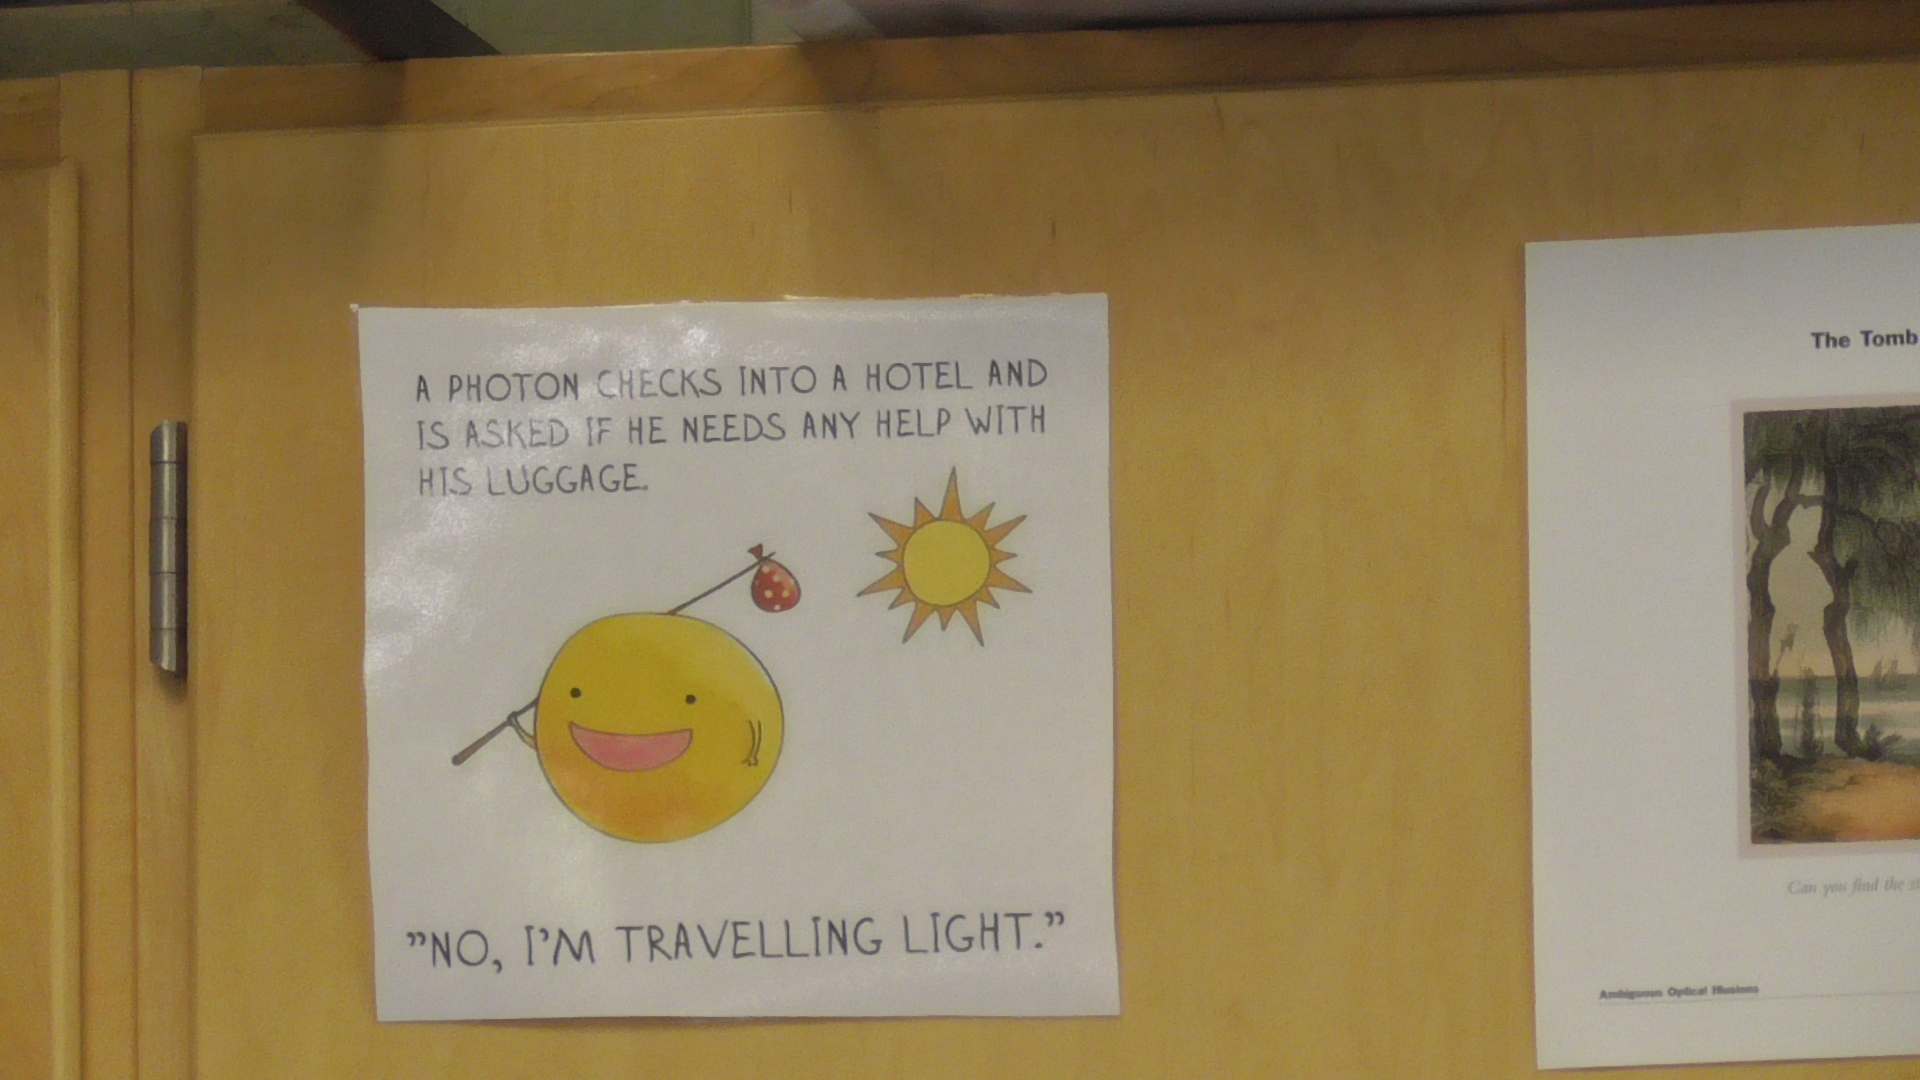 A PHOTON CHECKS INTO A HOTEL AND
IS ASKED IF HE NEEDS ANY HELP WITH
HIS LUGGAGE.
”NO, I’M TRAVELLING LIGHT.”
The Tomb
Can you find the
Ambiguous Optical Illusions